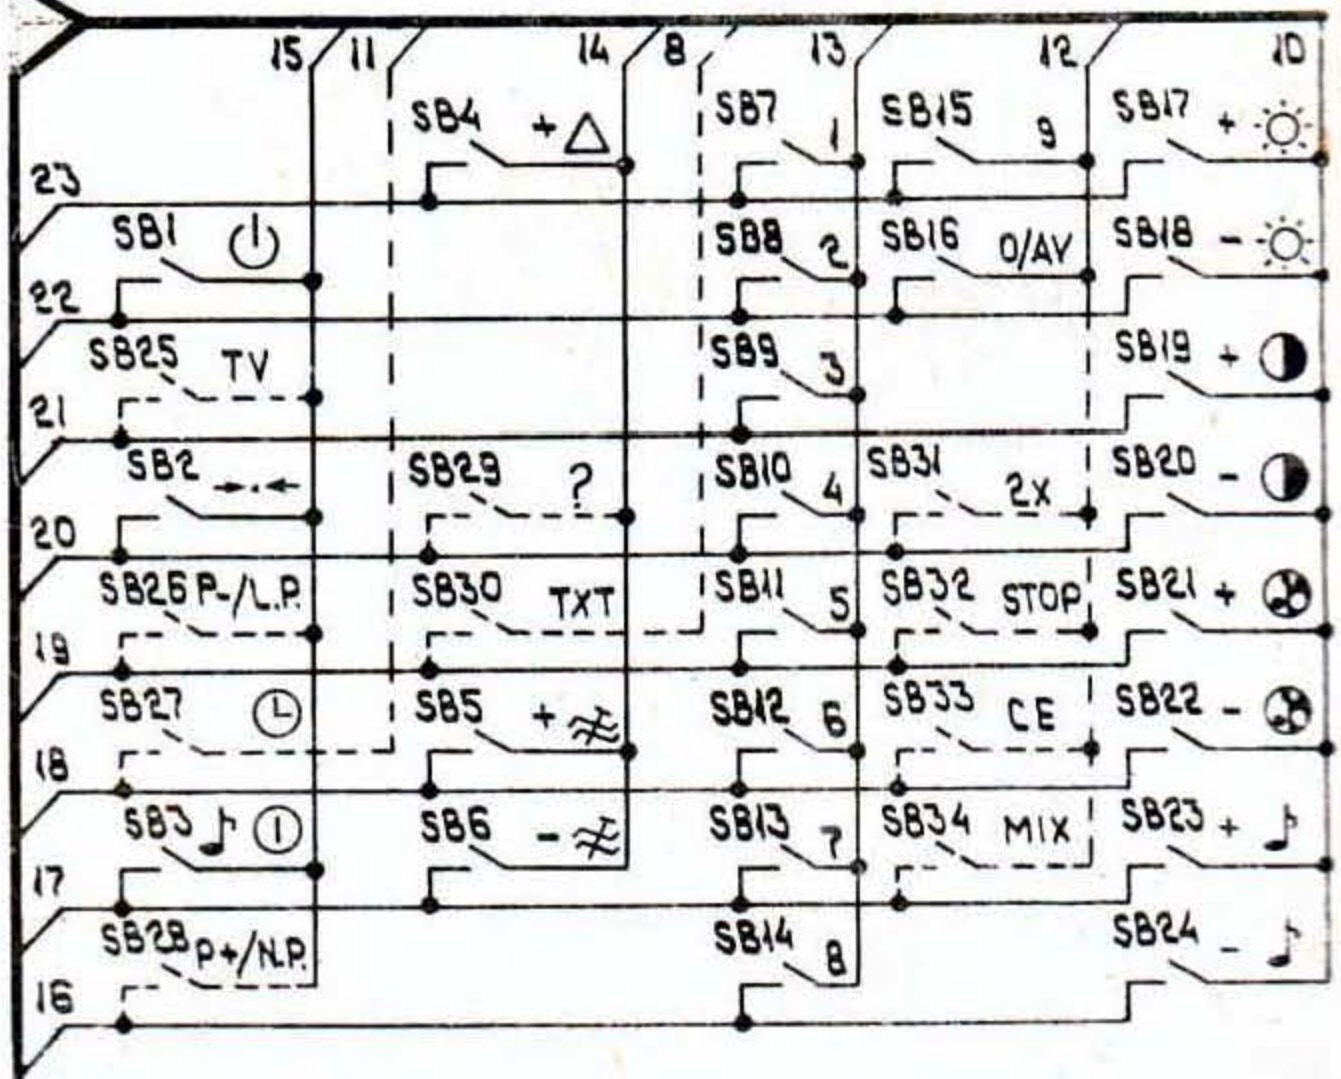 15 11 14 8 13 12 10
SB4 + SB7 1 SB15 9 SB17 +
23
SB1 SB8 2 SB16 0/AV SB18 -
22
SB25 TV SB9 3 SB19 +
21
SB2 SB29 ? SB10 4 SB31 2X SB20 -
20
SB26 P-/L.P. SB30 TXT SB11 5 SB32 STOP SB21 +
19
SB27 SB5 + SB12 6 SB33 CE SB22 -
18
SB3 SB6 - SB13 7 SB34 MIX SB23 +
17
SB28 P+/N.P. SB14 8 SB24 -
16